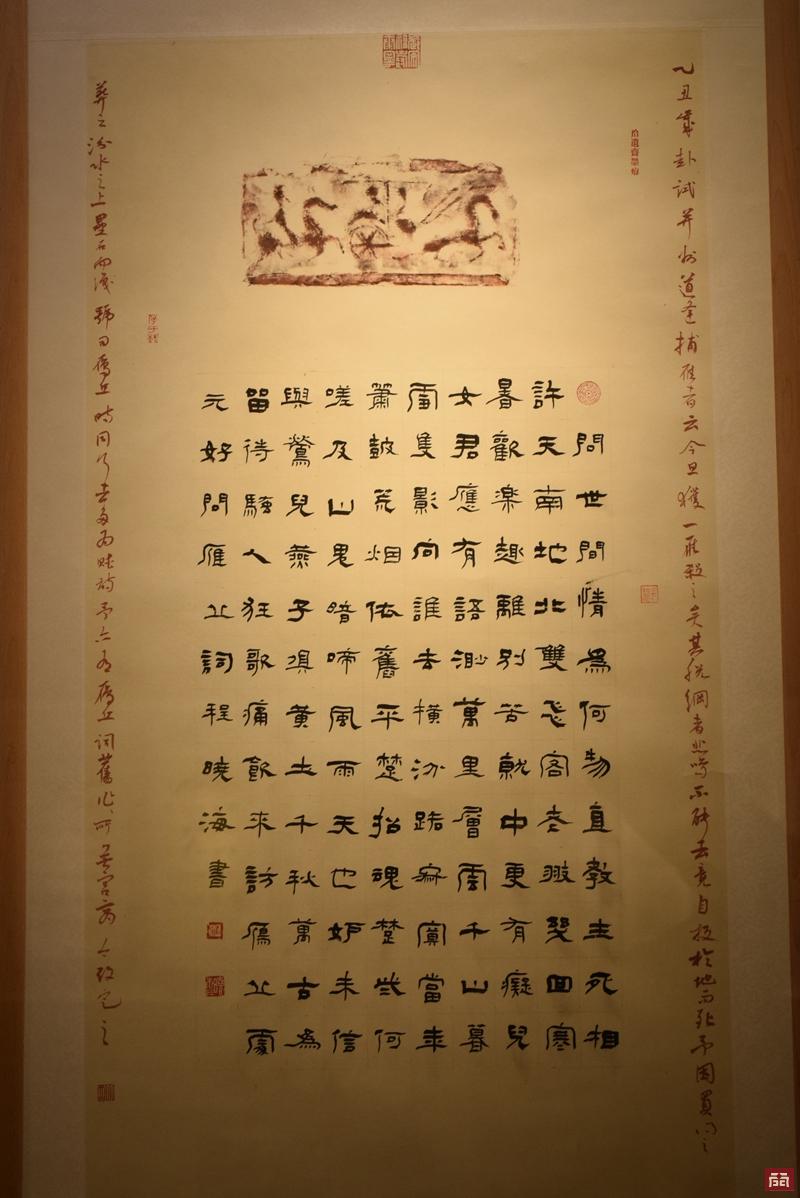 乙丑歲赴試并州道逢捕雁者云今旦獲一雁殺之矣其脫網者悲鳴不能去竟自投於地而死予因買之
問世間情爲何物直教生死相
許天南地北雙飛客老翅幾回寒
暑歡樂趣離別苦就中更有癡兒
女君應有語渺萬里層雲千山暮
雪隻影向誰去橫汾路寂寞當年
簫鼓荒烟依舊平楚招魂楚些何
嗟及山鬼暗啼風雨天也妒未信
與鶯兒燕子俱黃土千秋萬古為
留待騷人狂歌痛飲來訪鴈丘處
元好問雁丘詞程曉海書
葬之汾水之上壘石而識號曰鴈丘時同行者多為賦詩予亦有鴈丘詞舊作所無宮商今改定之